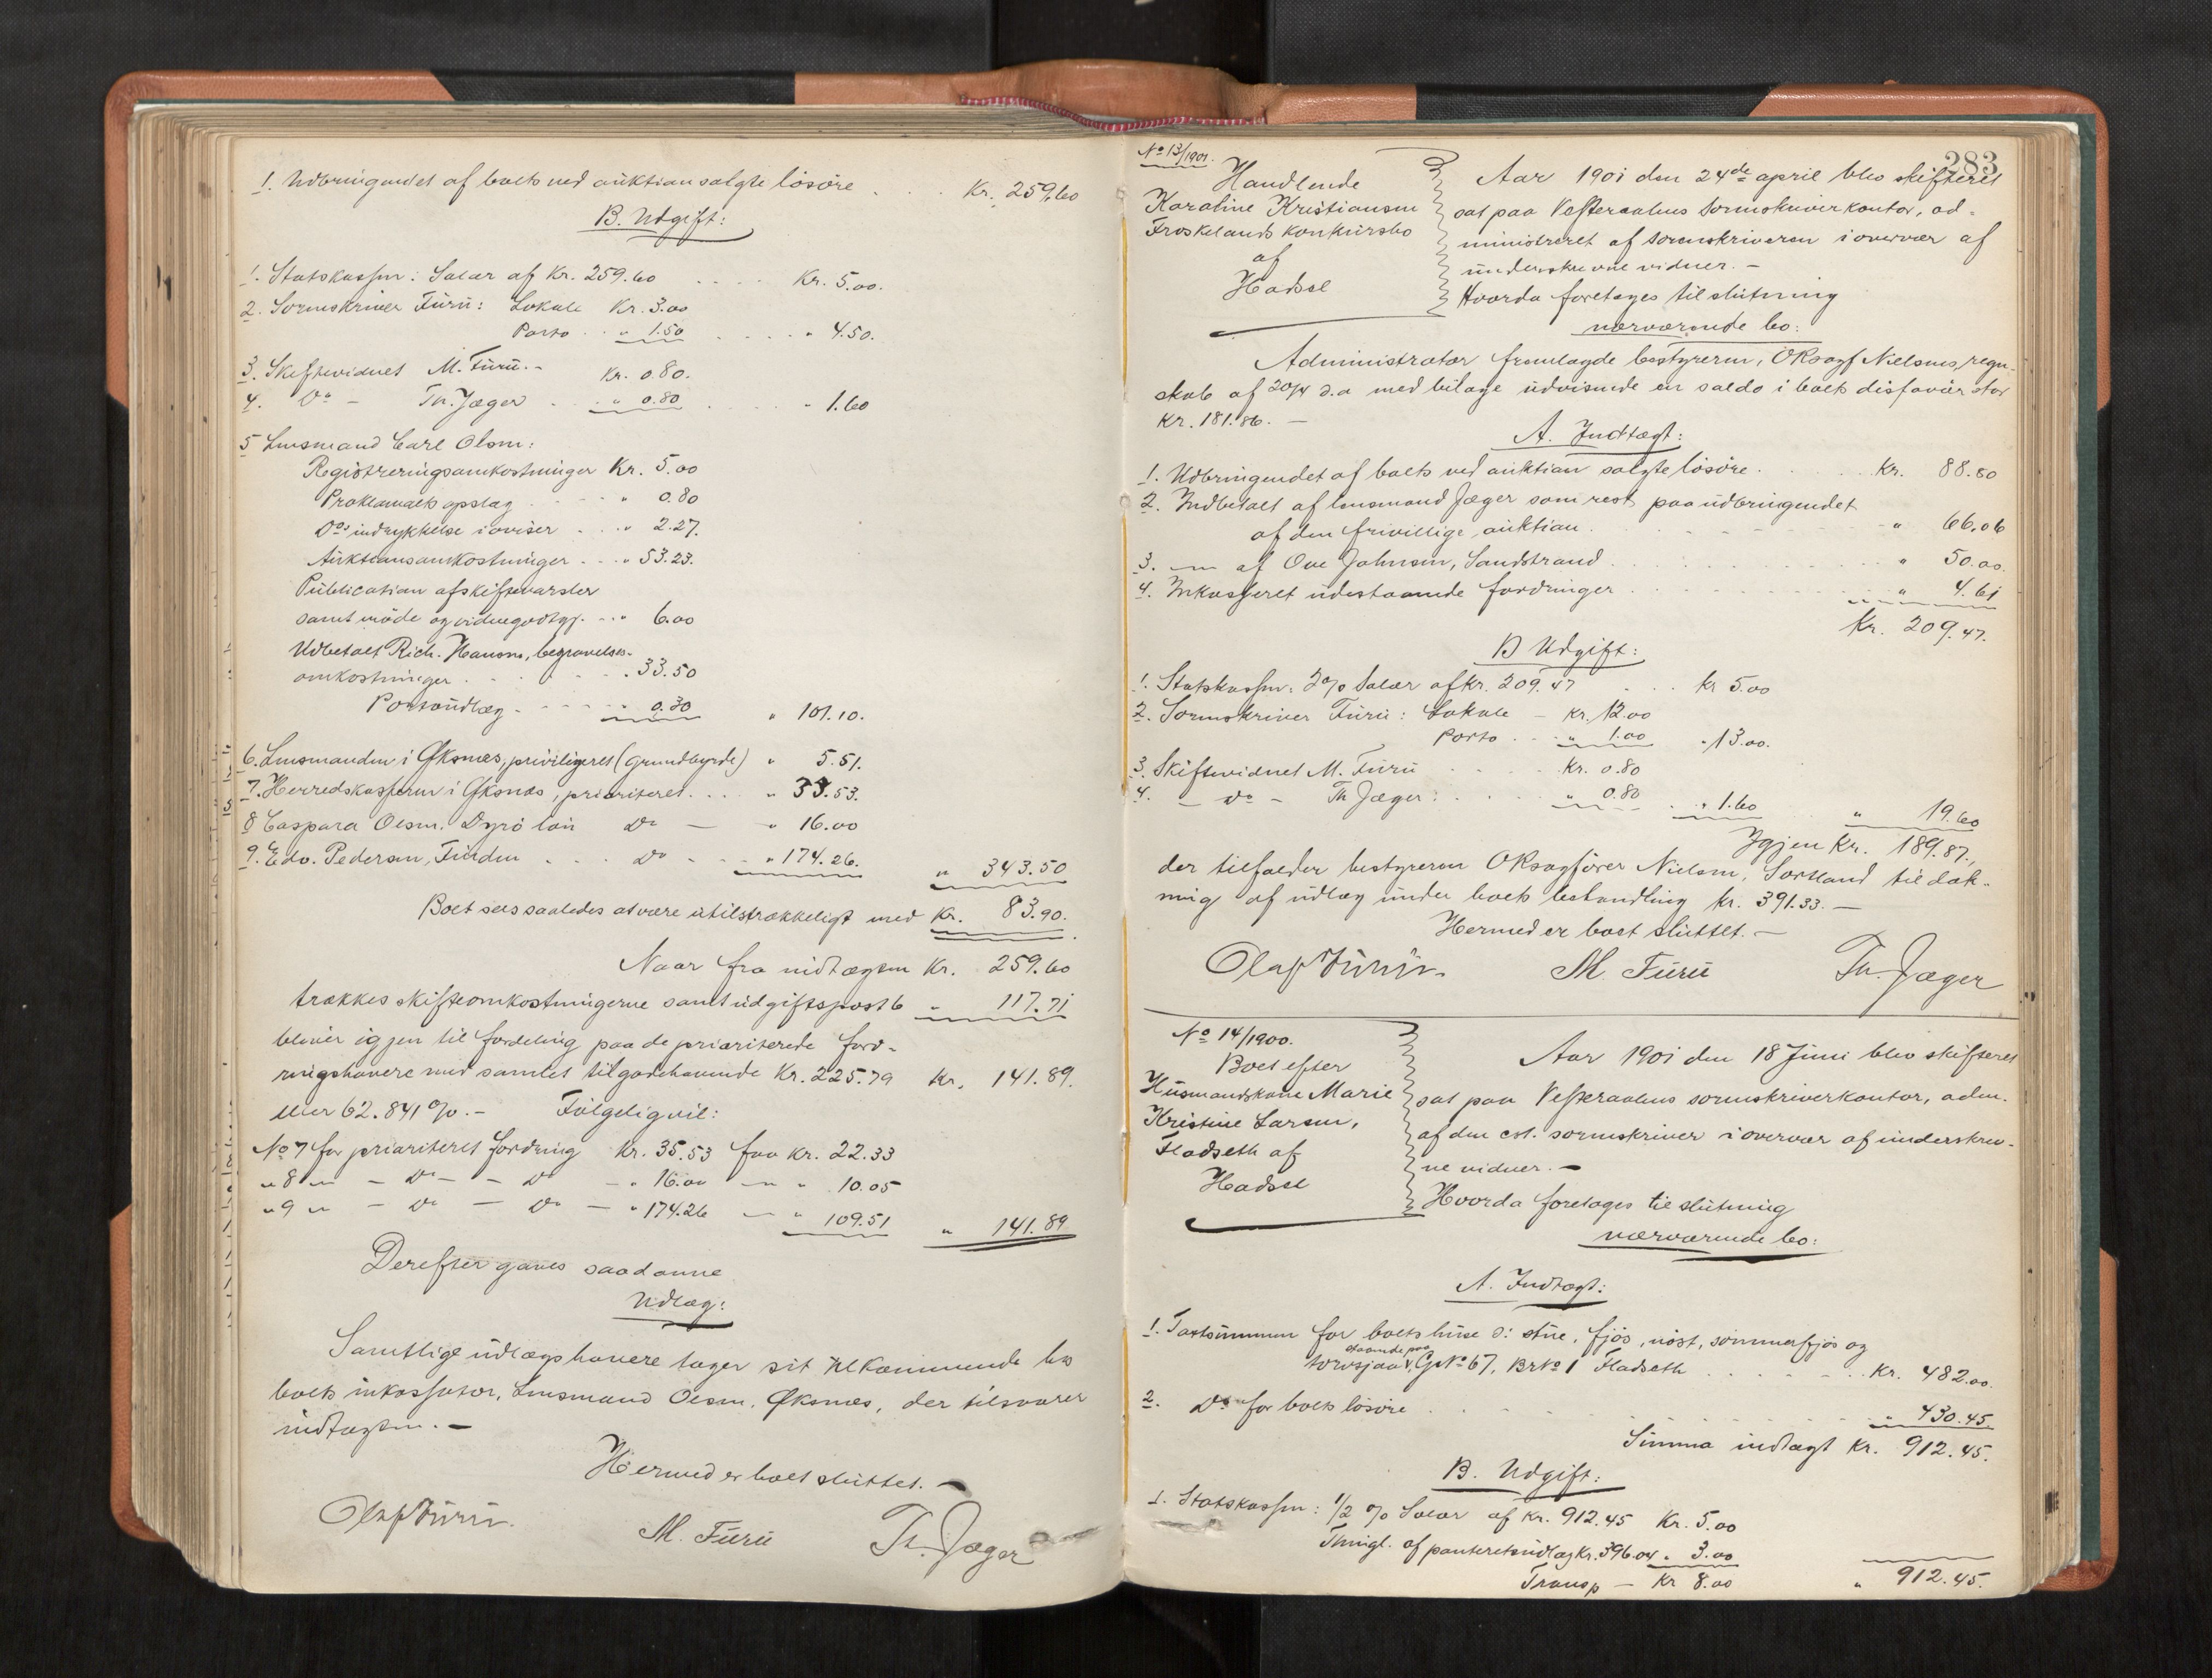 1. Udbringendet af boets ved auktion solgte lösöre . . . Kr. 259,60
B. Udgift:
1. Statskassen: Salær af Kr. 259.60 . . . . Kr. 5.00.
2. Sorenskriver Furu: Lokale Kr. 3.00
Porto . . " 1.50 . . . . " 4.50.
3. Skiftevidnet M. Furu. - Kr. 0.80.
4. Do - Th. Jæger . . " 0.80 . . . . " 1.60
5 Lensmand Carl Olsen:
Registreringsomkostninger Kr. 5.00
Proklamaets opslag . . . " 0.80
Dos indrykkelse i aviser . . " 2.27.
Auktionsomkostninger . . . " 53.23.
Publication af skiftevarsler
samt möde og vidnegodtgj. . . " 6.00
Udbetalt Rich. Hansen, begravelses-
omkostninger . . . . . 33.50
Portoudlæg . . . . . " 0.30 " 101.10.
6. Lensmanden i Øksnes, priviligeret (grundbyrde) " 5.51.
7. Herredskasseren i Øksnes, prioriteret. . . . " 35.53.
8 Caspara Olsen. Dyrö lön Do — " 16.00
9. Edv. Pedersen, Tinden . . . Do . . . " 174.26. " 343.50
Boet sees saaledes at være utilstrækkeligt med Kr. 83.90.
Naar fra indtægten Kr. 259.60
trækkes skifteomkostningerne samt udgiftspost 6 " 117.71
bliver igjen til fordeling paa de prioriterede ford-
ringshavere med samlet tilgodehavende Kr. 225.79 Kr. 141.89.
eller 62.841 %. - Fölgelig vil:
No 7 for prioriteret fordring Kr. 35.53 faa Kr. 22.33
" 8 " - Do - - Do - " 16.00 — " " 10.05
" 9 " - Do — Do — " 174.26 — " 109.51 " 141.89
Derefter gaves saadanne
Udlæg:
Samtlige udlægshavere tager sit tilkommende hos
boets inkassator, Lensmand Olsen, Øksnes, der tilsvarer
indtægten. —
Hermed er boet sluttet. —
Olaf Furu. M. Furu Th. Jæger
283
No 13/1901.
Handlende
Karoline Kristiansen
Froskelands konkursbo
af
Hadsel
Aar 1901 den 24de april blev skifteret
sat paa Vesteraalens Sorenskriverkontor, ad-
ministreret af sorenskriveren i overvær af
underskrevne vidner. -
Hvorda foretages til slutning
nærværende bo:
Administrator fremlagde bestyreren, ORsagf Nielsens, regn-
skab af 20/4 d.a med bilage udvisende en saldo i boets disfavör stor
Kr. 181.86. —
A. Indtægt:
1. Udbringendet af boets ved auktion solgte lösöre . . . . Kr. 88.80
2. Indbetalt af lensmand Jæger som rest paa udbringendet
af den frivillige auktion . . . . . " 66.06
3. —"— af Ove Johnsen, Sandstrand . . . . . " 50.00.
4. Inkasseret udestaaende fordringer . . . . . " 4.61
Kr. 209.47.
B Udgift:
1. Statskassen: 2% Salær af Kr. 209.47 . . . Kr 5.00
2. Sorenskriver Furu: Lokale - Kr. 12.00
Porto . . " 1.00 " 13.00.
3. Skiftevidnet M. Furu . . . Kr. 0.80
4. - Do - Th Jæger: . . . " 0.80 . " 1.60 " 19.60
Igjen Kr. 189.87,
der tilfalder bestyreren ORsagförer Nielsen, Sortland til dæk-
ning af udlæg under boets behandling Kr. 391.33. —
Hermed er boet sluttet. —
Olaf Furu. M. Furu Th. Jæger
No 14/1900.
Boet efter
Husmandskone Marie
Kristine Larsen,
Fladseth af
Hadsel
Aar 1901 den 18 Juni blev skifteret
sat paa Vesteraalens sorenskriverkontor, adm.
af den cst. sorenskriver i overvær af underskrev-
ne vidner. —
Hvorda foretages til slutning
nærværende bo:
A. Indtægt:
1. Taxtsummen for boets huse ɔ: stue, fjös, nöst, sommerfjös og
torvsjaa staaende paa G. No 67, Br No 1 Fladseth . . . . . . Kr. 482.00.
2. Do for boets lösöre . . . . . " 430.45.
Summa indtægt Kr. 912.45.
B. Udgift:
1. Statskassen: 1/2 % Salær af Kr. 912.45 Kr. 5.00
Thingl. af panteretsudlæg Kr. 396.04 " 3.00
Transp — Kr 8.00 " 912.45.